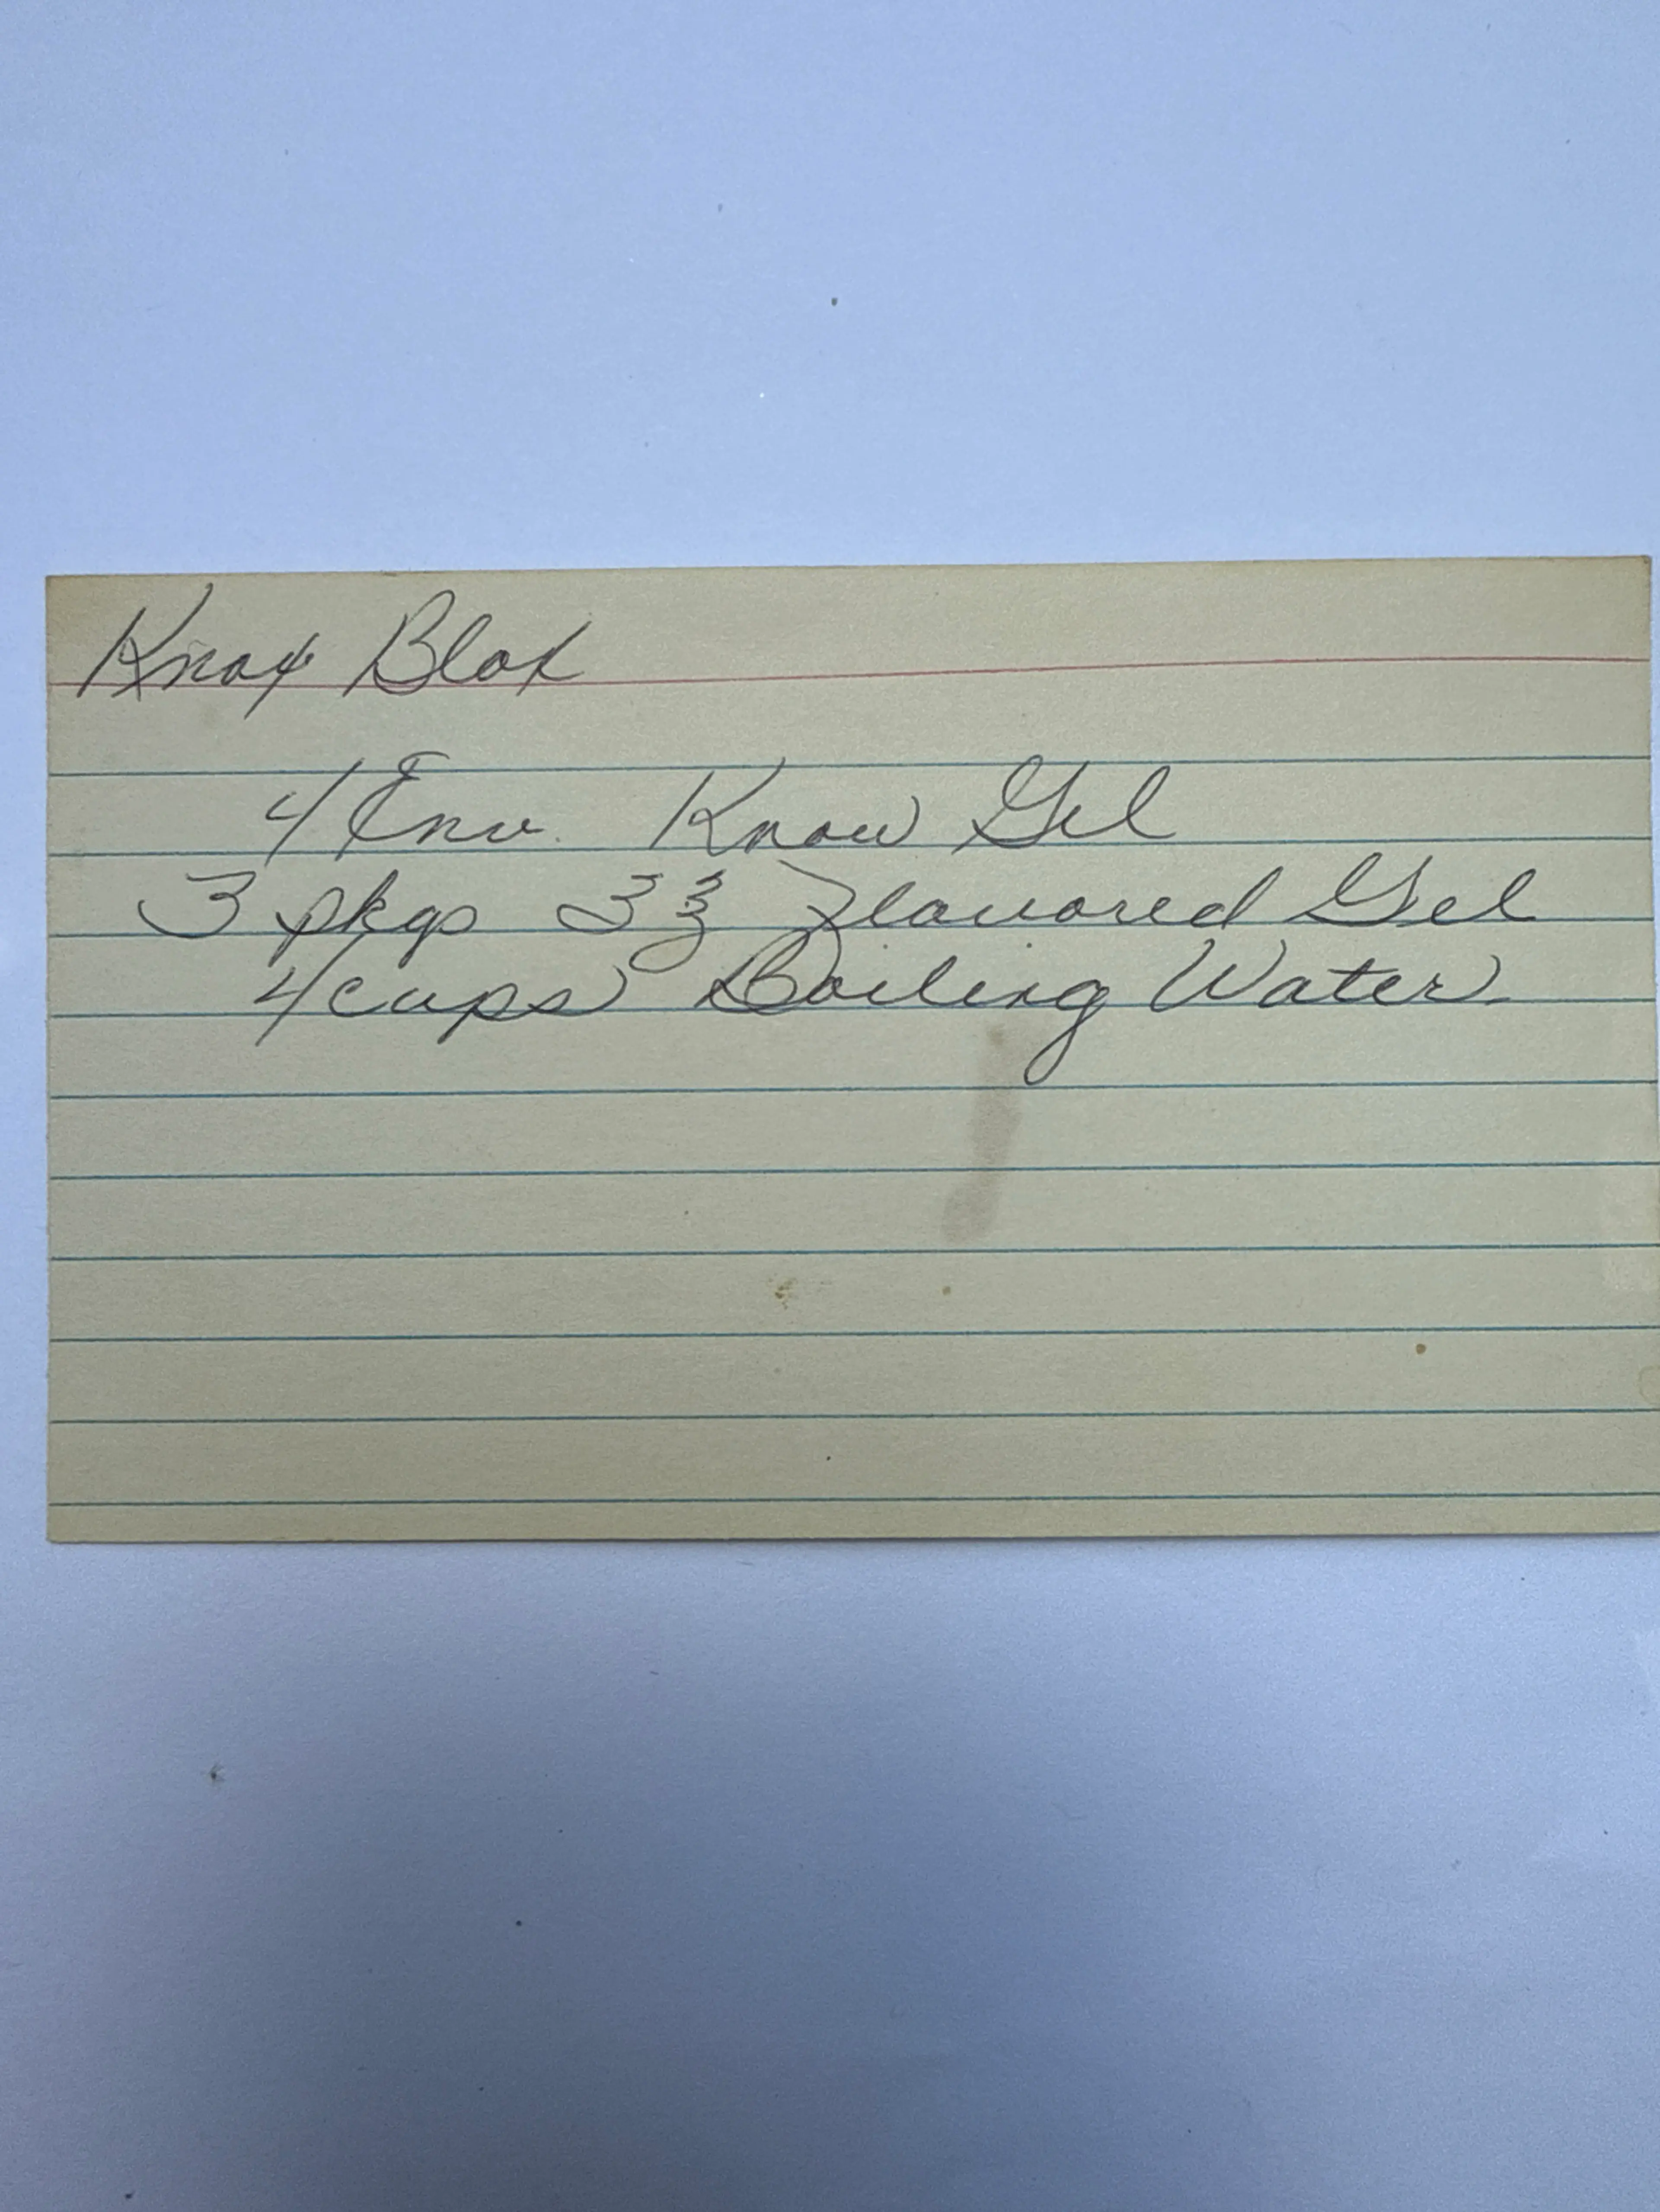 Knox Blox
4 Env. Know Gel
3 pkgs 3 ℥ Flavored Gel
4 cups Boiling Water